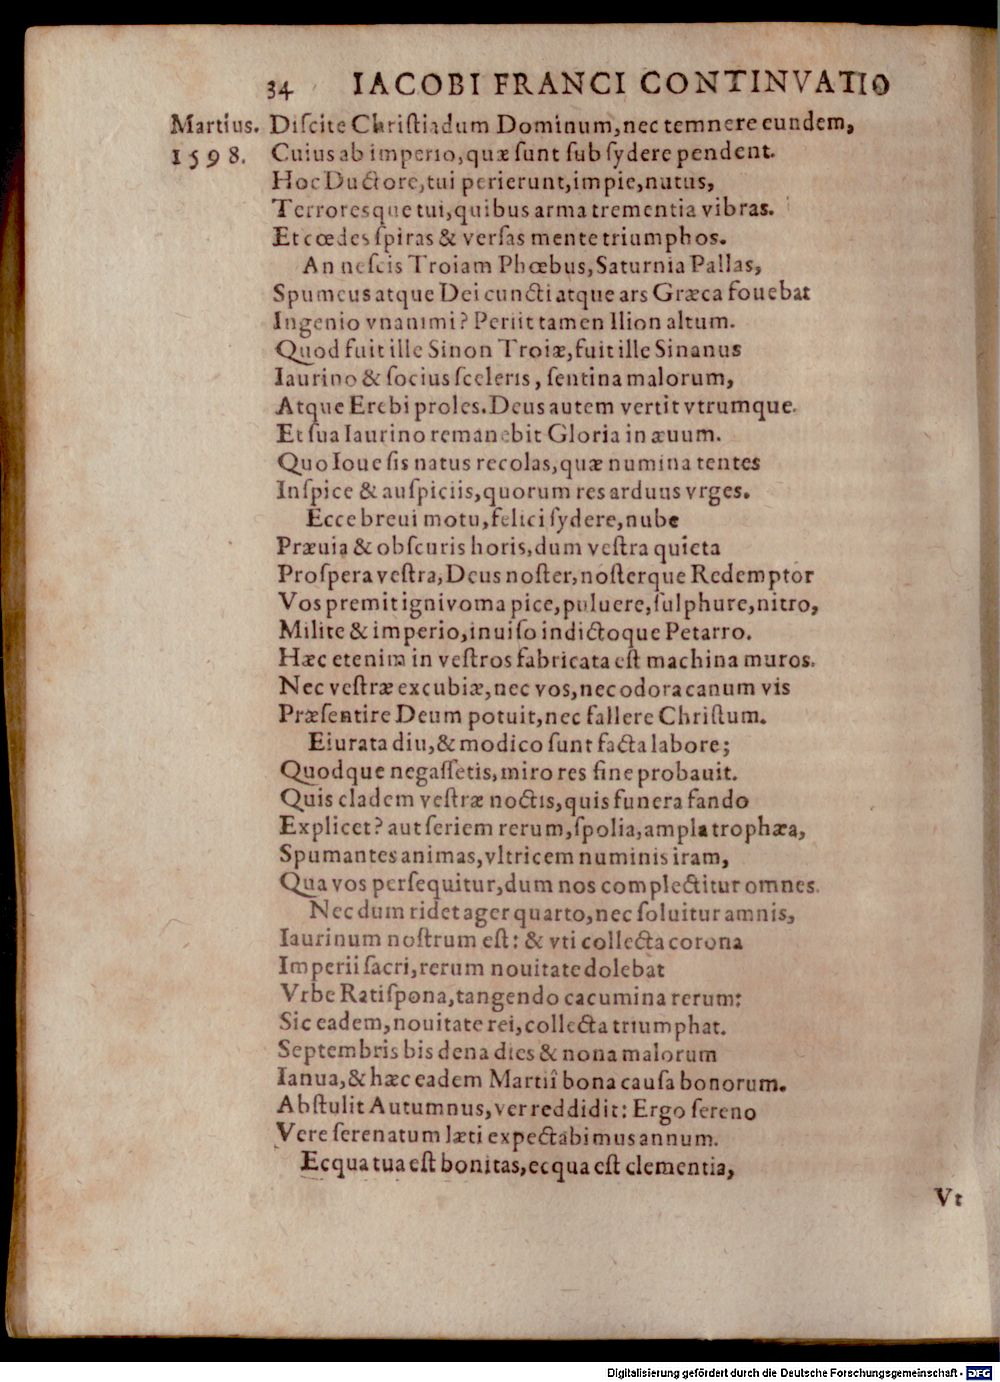 34 IACOBI FRANCI CONTINVATIO
Martius. Diſcite Chriſtiadum Dominum, nec temnere eundem,
1598. Cuius ab imperio, quæ ſunt ſub ſydere pendent.
Hoc Ductore, tui perierunt, impie, nutus,
Terroresque tui, quibus arma trementia vibras.
Et cœdes ſpiras & verſas mente triumphos.
An neſcis Troiam Phœbus, Saturnia Pallas,
Spumeus atque Dei cuncti atque ars Græca fouebat
Ingenio vnanimi? Periit tamen Ilion altum.
Quod fuit ille Sinon Troiæ, fuit ille Sinanus
Iaurino & ſocius ſceleris, ſentina malorum,
Atque Erebi proles. Deus autem vertit vtrumque.
Et ſua Iaurino remanebit Gloria in æuum.
Quo Ioue ſis natus recolas, quæ numina tentes
Inſpice & auſpiciis, quorum res arduus vrges.
Ecce breui motu, felici ſydere, nube
Præuia & obſcuris horis, dum veſtra quieta
Proſpera veſtra, Deus noſter, noſterque Redemptor
Vos premit ignivoma pice, puluere, ſulphure, nitro,
Milite & imperio, inuiſo indictoque Petarro.
Hæc etenim in veſtros fabricata eſt machina muros.
Nec veſtræ excubiæ, nec vos, nec odora canum vis
Præſentire Deum potuit, nec fallere Chriſtum.
Eiurata diu, & modico ſunt facta labore;
Quodque negaſſetis, miro res fine probauit.
Quis cladem veſtræ noctis, quis funera fando
Explicet? aut ſeriem rerum, ſpolia, ampla trophæa,
Spumantes animas, vltricem numinis iram,
Qua vos perſequitur, dum nos complectitur omnes.
Nec dum ridet ager quarto, nec ſoluitur amnis,
Iaurinum noſtrum eſt: & vti collecta corona
Imperii ſacri, rerum nouitate dolebat
Vrbe Ratiſpona, tangendo cacumina rerum:
Sic eadem, nouitate rei, collecta triumphat.
Septembris bis dena dies & nona malorum
Ianua, & hæc eadem Martiî bona cauſa bonorum.
Abſtulit Autumnus, ver reddidit: Ergo ſereno
Vere ſerenatum læti expectabimus annum.
Ecqua tua eſt bonitas, ecqua eſt clementia,
Vt
Digitalisierung gefördert durch die Deutsche Forschungsgemeinschaft - DFG